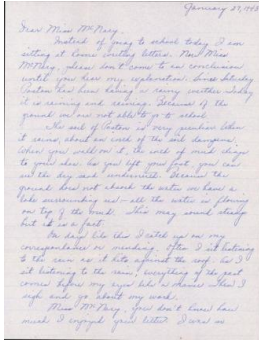 January 27, 1943
Dear Miss McNary,
Instead of going to school today I am
sitting at home writing letters. Now Miss
McNary, please don't come to an conclusion
until you hear my explanation. Since Saturday
Poston has been having a rainy weather. Today
it is raining and raining. Because of the
ground we are not able to go to school.
The soil of Poston is very peculiar. When
it rains, about an inch of the soil dampens.
When you walk on it, the inch of mud clings
to your shoe. As you lift your foot, you can
see the dry sand underneath. Because the
ground does not absorb the water we have a
lake surrounding us - all the water is flowing
on top of the mud. This may sound strange
but it is a fact.
On days like this I catch up on my
correspondence or reading. Often I sit listening
to the rain as it hits against the roof. As I
sit listening to the rain, everything of the past
comes before my eyes like a movie. Then I
sigh and go about my work.
Miss McNary, you don't know how
much I enjoyed your letter. I was so